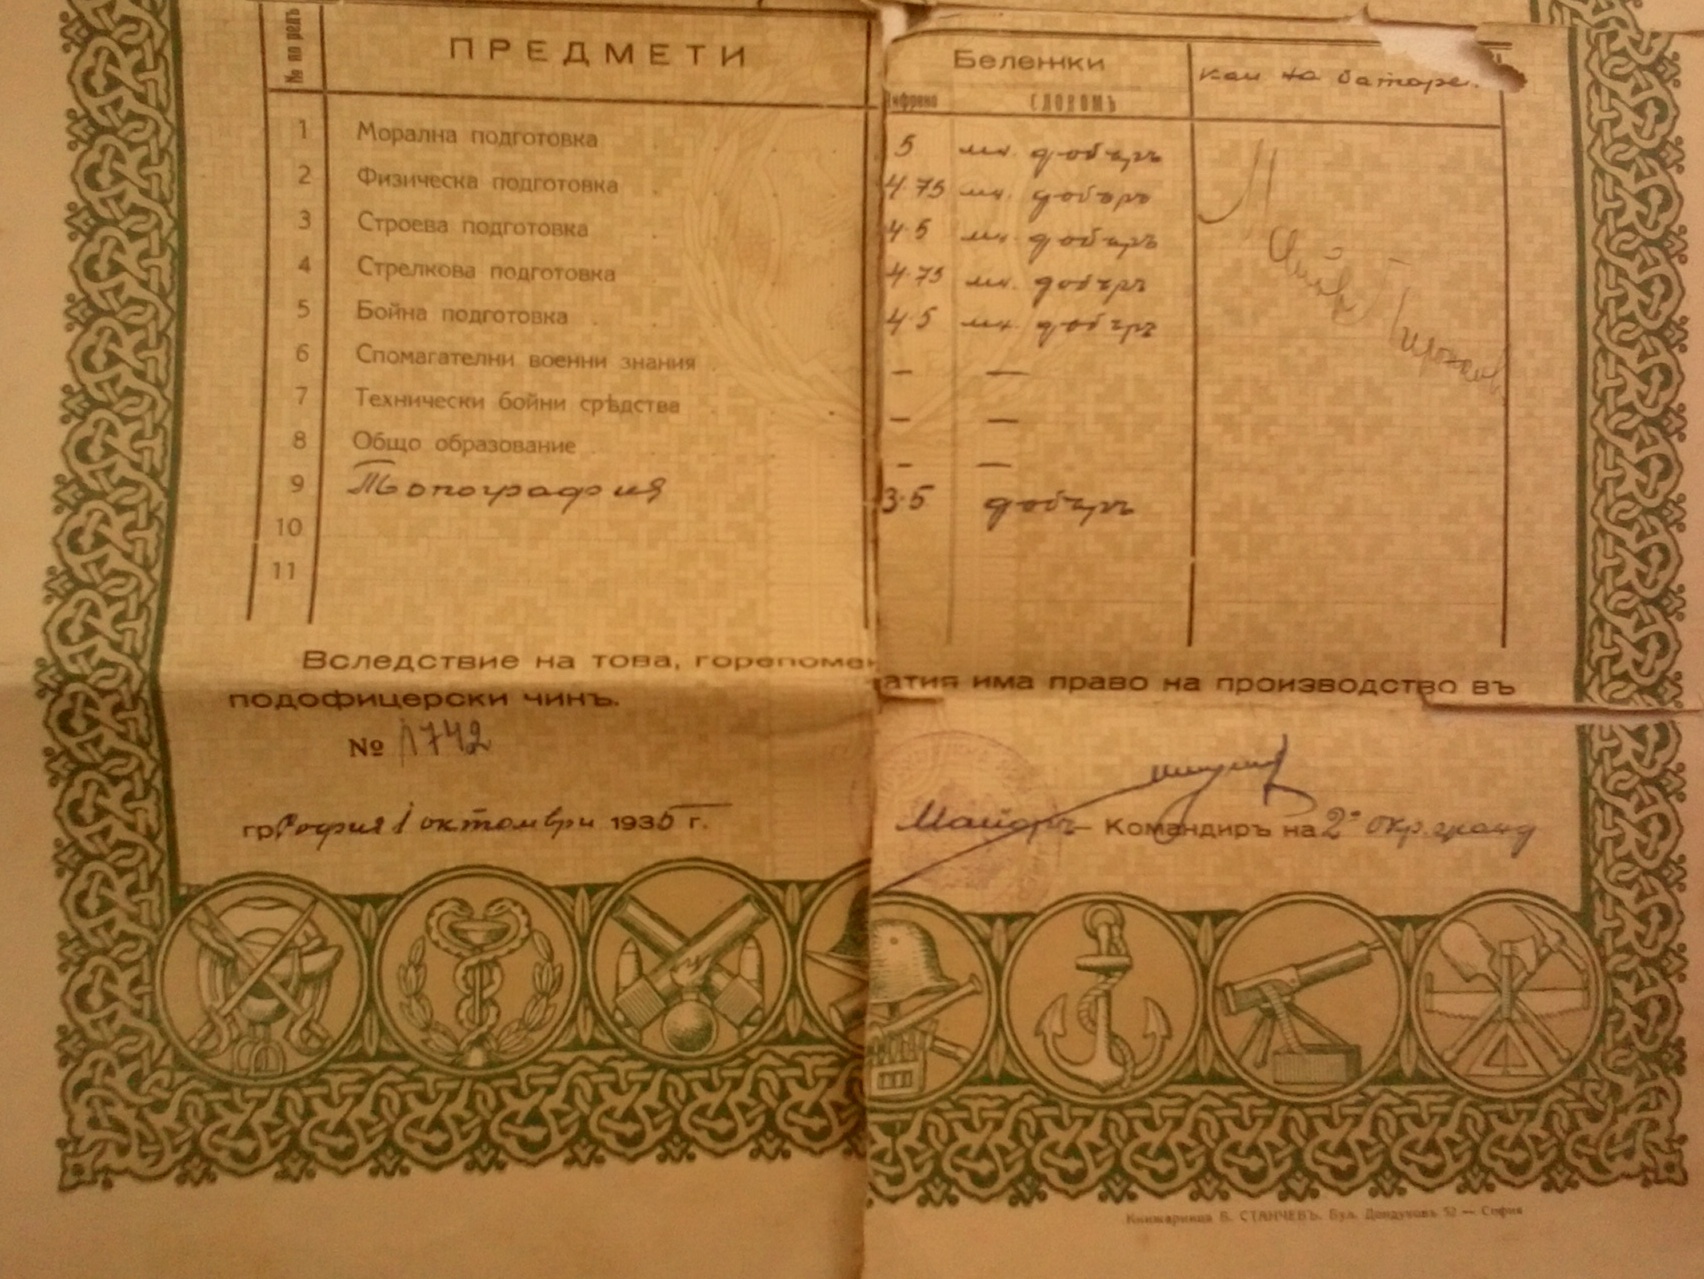 № по редъ ПРЕДМЕТИ Бележки
цифрено словомъ
1 Морална подготовка 5 мн. добъръ
2 Физическа подготовка 4·75 мн. добъръ
3 Строева подготовка 4·5 мн. добъръ
4 Стрелкова подготовка 4·75 мн. добъръ
5 Бойна подготовка 4·5 мн. добъръ
6 Спомагателни военни знания — —
7 Технически бойни срѣдства — —
8 Общо образование — —
9 Топография 3·5 добъръ
10
11
Вследствие на това, горепомен атия има право на производство въ
подофицерски чинъ.
№ 1742
гр. София 1 октомври 1935 г. Майоръ — Командиръ на 2
Книжарница Б. СТАНЧЕВЪ, Бул. Дондуковъ 52 — София